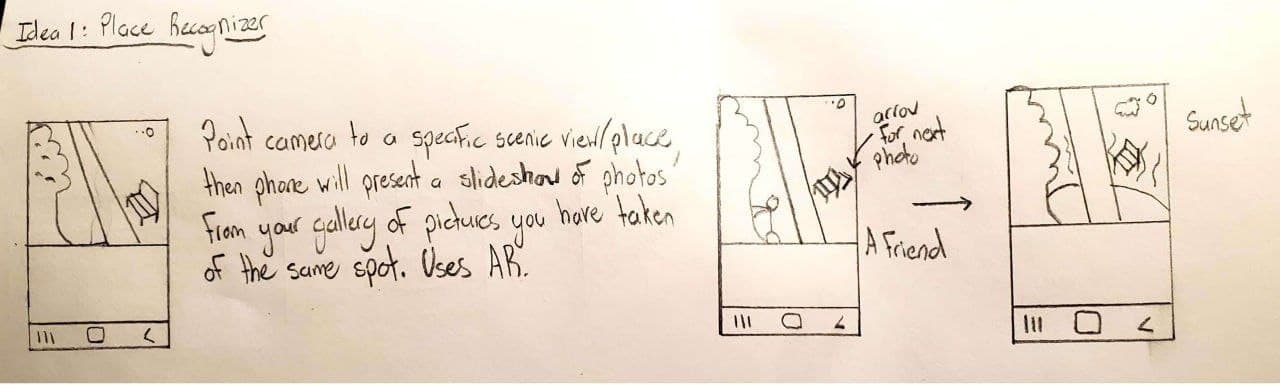 Idea 1: Place Recognizer
Point camera to a specific scenic view/place,
then phone will present a slideshow of photos
from your gallery of pictures you have taken
of the same spot. Uses AR.
arrow
for next
photo
A Friend
Sunset